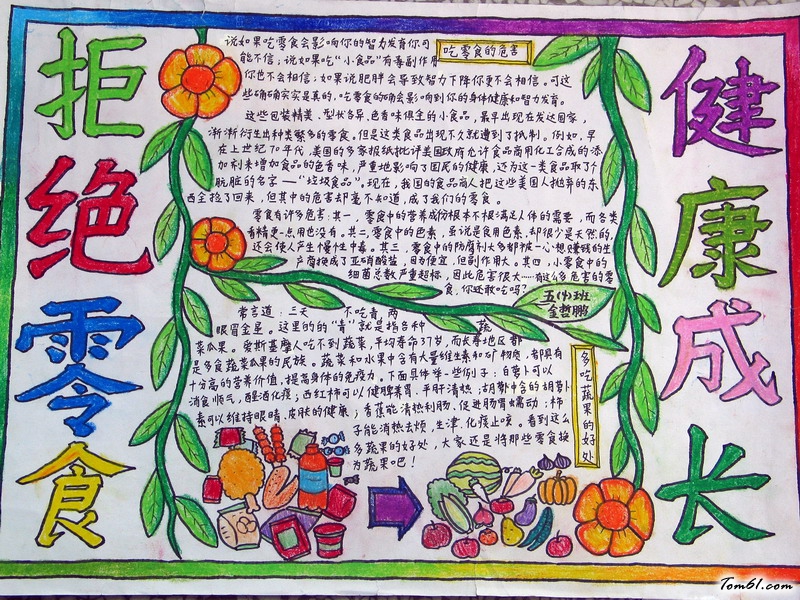 拒绝零食
健康成长
吃零食的危害
说如果吃零食会影响你的智力发育你可
能不信；说如果吃“小食品”有毒副作用
你也不会相信；如果说肥胖会导致智力下降你更不会相信。可这
些确确实实是真的，吃零食的确会影响到你的身体健康和智力发育。
这些包装精美、型状各异、色香味俱全的小食品，最早出现在发达国家，
渐渐衍生出种类繁多的零食。但是这类食品出现不久就遭到了抵制。例如，早
在上世纪70年代，美国的多家报纸批评美国政府允许食品商用化工合成的添
加剂来增加食品的色香味，严重地影响了国民的健康，还为这一类食品取了个
肮脏的名字——“垃圾食品”。现在，我国的食品商人把这些美国人抛弃的东
西全捡了回来，但其中的危害却毫不知道，成了我们的零食。
零食有许多危害：其一，零食中的营养成份根本不根满足人体的需要，而各类
有精更一点用也没有。其二，零食中的色素，虽说是食用色素，却很少是天然的，
还会使人产生慢性中毒。其三，零食中的防腐剂大多都被一心想赚钱的生
产商换成了亚硝酸盐，因为便宜，但副作用大。其四，小零食中的
细菌总数严重超标，因此危害很大……有这么多危害的零
食，你还敢吃吗？
五(4)班
金哲鹏
多吃蔬果的好处
常言道：三天 不吃青，两
眼冒金星。这里的的“青”就是指各种 蔬
菜瓜果。爱斯基摩人吃不到蔬菜，平均寿命37岁，而长寿地区都
是多食蔬菜瓜果的民族。蔬菜和水果中含有大量维生素和矿物质，都具有
十分高的营养价值，提高身体的免疫力。下面具体举一些例子：白萝卜可以
消食顺气，醒酒化痰；西红柿可以健脾养胃，平肝清热；胡萝卜中含的胡萝卜
素可以维持眼睛、皮肤的健康；香蕉能清热利肠，促进肠胃蠕动；柿
子能消热去烦，生津，化痰止咳。看到这么
多蔬果的好处，大家还是将那些零食换
为蔬果吧！
Tom61.com